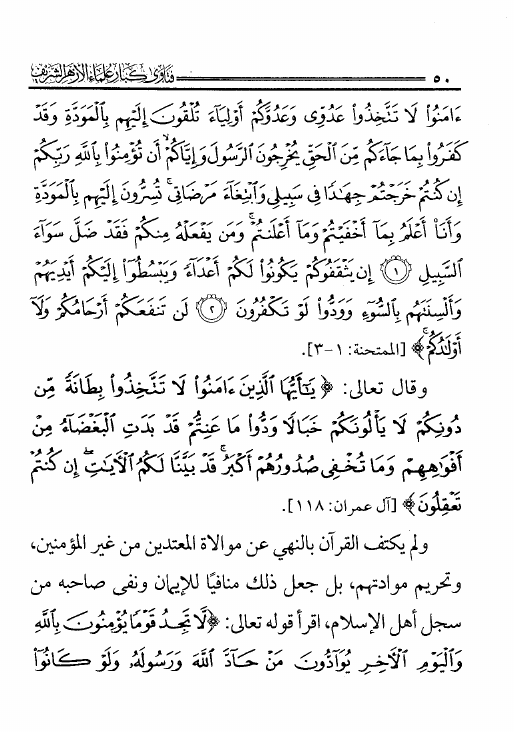 ٥٠ فتاوى كبار علماء الأزهر الشريف
ءَامَنُوا۟ لَا تَتَّخِذُوا۟ عَدُوِّى وَعَدُوَّكُمْ أَوْلِيَآءَ تُلْقُونَ إِلَيْهِم بِٱلْمَوَدَّةِ وَقَدْ
كَفَرُوا۟ بِمَا جَآءَكُم مِّنَ ٱلْحَقِّ يُخْرِجُونَ ٱلرَّسُولَ وَإِيَّاكُمْ ۙ أَن تُؤْمِنُوا۟ بِٱللَّهِ رَبِّكُمْ
إِن كُنتُمْ خَرَجْتُمْ جِهَـٰدًا فِى سَبِيلِى وَٱبْتِغَآءَ مَرْضَاتِى ۚ تُسِرُّونَ إِلَيْهِم بِٱلْمَوَدَّةِ
وَأَنَا۠ أَعْلَمُ بِمَآ أَخْفَيْتُمْ وَمَآ أَعْلَنتُمْ ۚ وَمَن يَفْعَلْهُ مِنكُمْ فَقَدْ ضَلَّ سَوَآءَ
ٱلسَّبِيلِ ﴿١﴾ إِن يَثْقَفُوكُمْ يَكُونُوا۟ لَكُمْ أَعْدَآءً وَيَبْسُطُوٓا۟ إِلَيْكُمْ أَيْدِيَهُمْ
وَأَلْسِنَتَهُم بِٱلسُّوٓءِ وَوَدُّوا۟ لَوْ تَكْفُرُونَ ﴿٢﴾ لَن تَنفَعَكُمْ أَرْحَامُكُمْ وَلَآ
أَوْلَـٰدُكُمْ ۚ﴾ [الممتحنة: ١-٣].
وقال تعالى: ﴿يَـٰٓأَيُّهَا ٱلَّذِينَ ءَامَنُوا۟ لَا تَتَّخِذُوا۟ بِطَانَةً مِّن
دُونِكُمْ لَا يَأْلُونَكُمْ خَبَالًا وَدُّوا۟ مَا عَنِتُّمْ قَدْ بَدَتِ ٱلْبَغْضَآءُ مِنْ
أَفْوَٰهِهِمْ وَمَا تُخْفِى صُدُورُهُمْ أَكْبَرُ ۚ قَدْ بَيَّنَّا لَكُمُ ٱلْـَٔايَـٰتِ ۖ إِن كُنتُمْ
تَعْقِلُونَ﴾ [آل عمران: ١١٨].
ولم يكتف القرآن بالنهي عن موالاة المعتدين من غير المؤمنين،
وتحريم موادتهم، بل جعل ذلك منافيًا للإيمان ونفى صاحبه من
سجل أهل الإسلام، اقرأ قوله تعالى: ﴿لَّا تَجِدُ قَوْمًا يُؤْمِنُونَ بِٱللَّهِ
وَٱلْيَوْمِ ٱلْـَٔاخِرِ يُوَآدُّونَ مَنْ حَآدَّ ٱللَّهَ وَرَسُولَهُۥ وَلَوْ كَانُوٓا۟